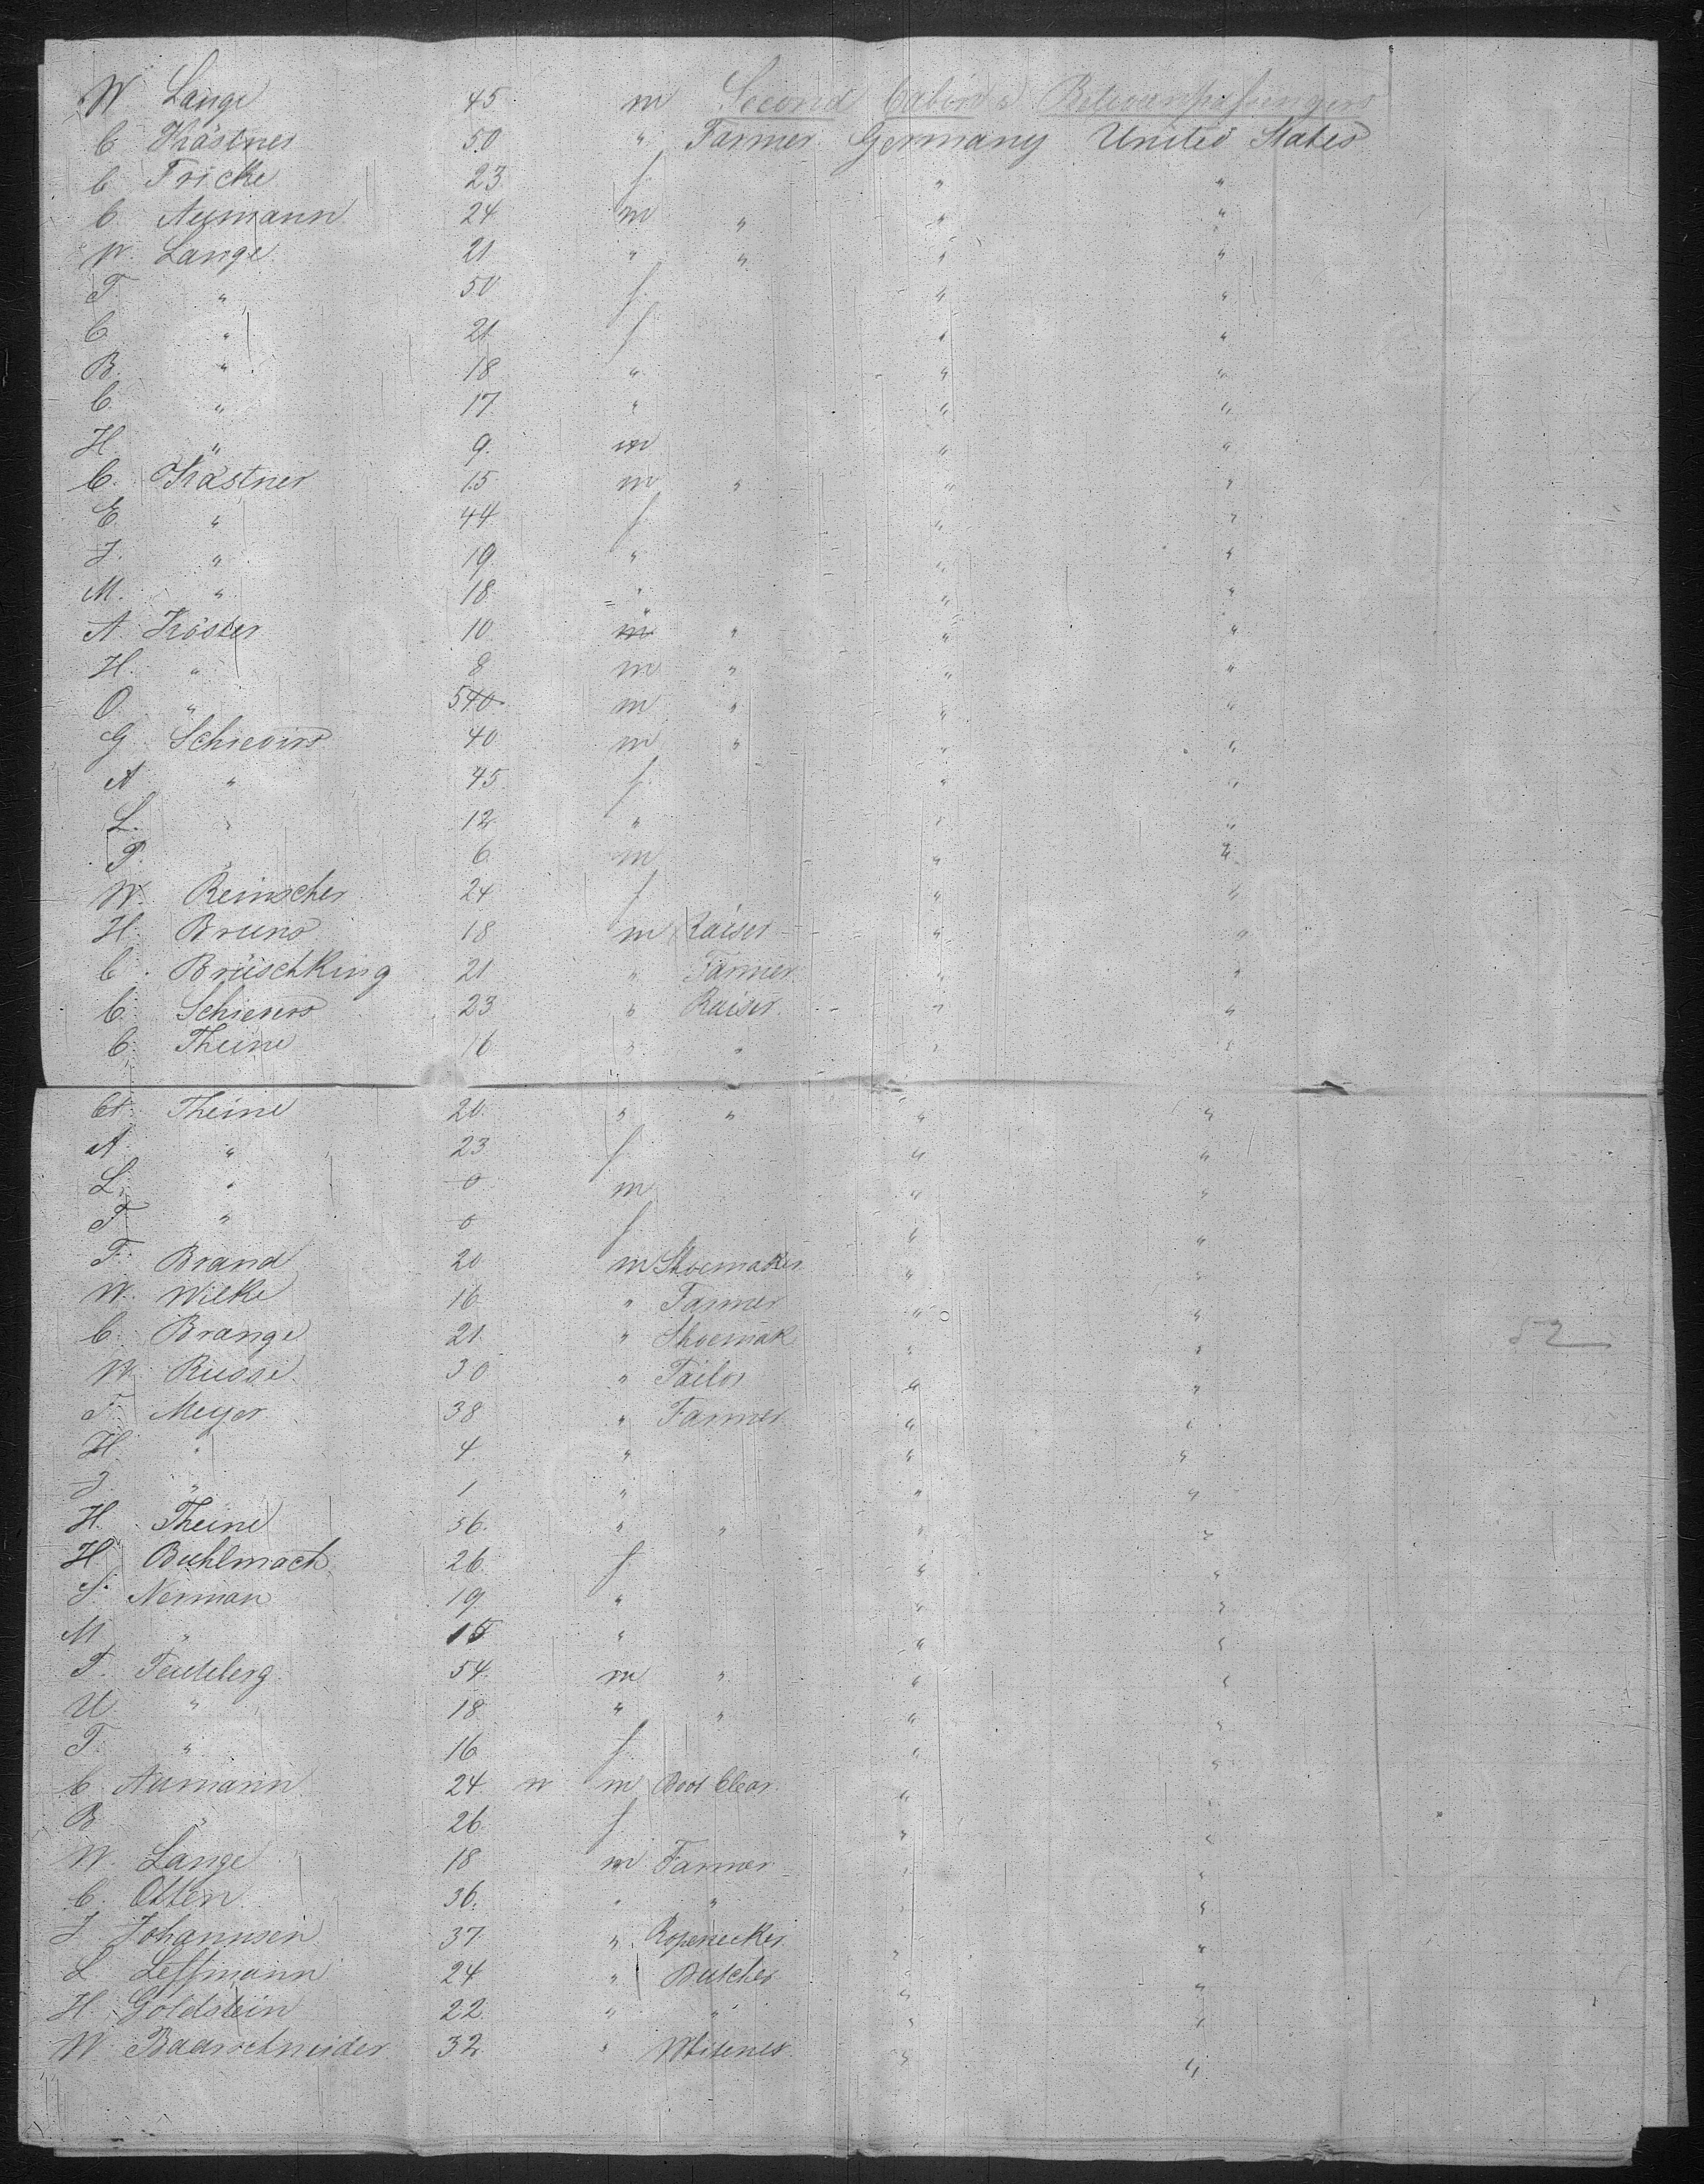 W Lange 45 m Second Cabin
C Kästner 50 " Farmer Germany United States
C Fricke 23 f " "
C. Aumann 24 m " " "
W. Lange 21 " " " "
F. " 50 f " "
C " 21 f " "
B. " 18 " " "
C. " 17 " " "
H. " 9. m " "
C. Kästner 15 m " " "
E. " 44 f " "
J. " 19. " " "
M. " 18. " " "
A. Köster 10. " " "
H. " 8 m " " "
O. " m " " "
G. Schievirs 40 m " " "
A " 45 f " "
L. " 12 " " "
F. " 6. m " "
W. Reinscher 24 f " "
H. Bruns 18 m Raiser " "
C. Brüschking 21 " Farmer " "
C. Schievers 23 " Raiser " "
C. Theine 16 " " " "
Ct. Theine 20. " " " "
A " 23 f " "
L. " 0 m " "
F " 0 f " "
F. Brand 20 m Shoemaker " "
W. Wilke 16 " Farmer " "
C. Brange 21. " Shoemak " "
52
W. Russe 30 " Tailor " "
F. Meyer 38 " Farmer " "
H. " 4. " " "
J. " 1 " " "
H. Theine 36. " " " "
H. Buhlmach 26. f " "
S. Nerman 19 " " "
M " 15 " " "
F. 54. m " " "
U " 18 " " " "
F. " 16 f " "
C. Aumann 24 m Boot Clear " "
B " 26. f " "
W. Lange 18 m Farmer " "
C. Otten 36. " " " "
J. Johannsen 37 " " "
L Leffmann 24 " Butcher " "
H. Goldstein 22. " " " "
W. Baarschneider 32 " " "